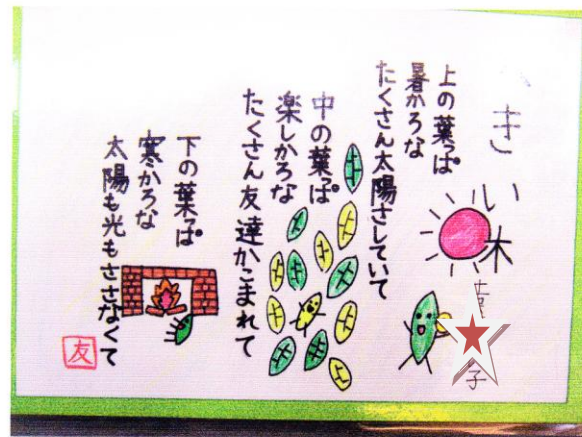 きい木
子
上の葉っぱ
暑かろな
たくさん太陽さしていて
中の葉っぱ
楽しかろな
たくさん友達かこまれて
下の葉っぱ
寒かろな
太陽も光もささなくて
友